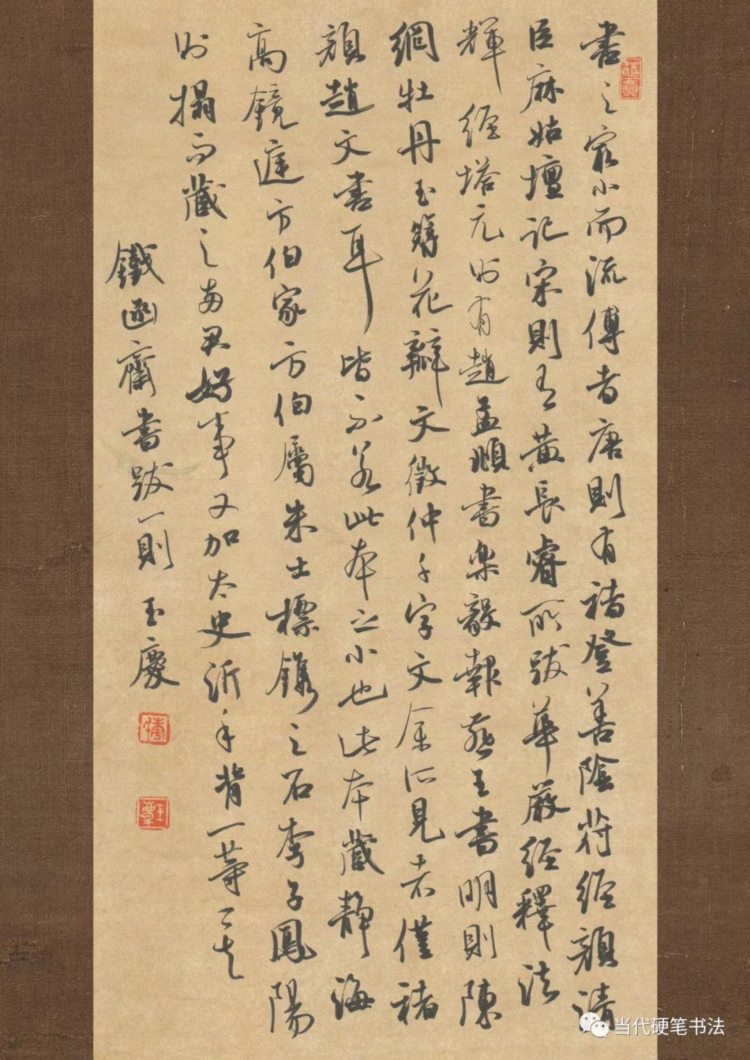 書之最小而流傳者唐則有褚登善陰符經顏清
臣麻姑壇記宋則有黃長睿所跋華嚴經釋法
輝經塔元則有趙孟頫書樂毅報燕王書明則陳
綱牡丹玉簪花瓣文徵仲千字文余所見者僅褚
顏趙文書耳皆不若此本之小也此本藏靜海
高鏡庭方伯家方伯屬朱士標鐫之石李子鳳陽
則搨而藏之兩君好事又加太史
一等云
鐵函齋書跋一則 玉慶
当代硬笔书法